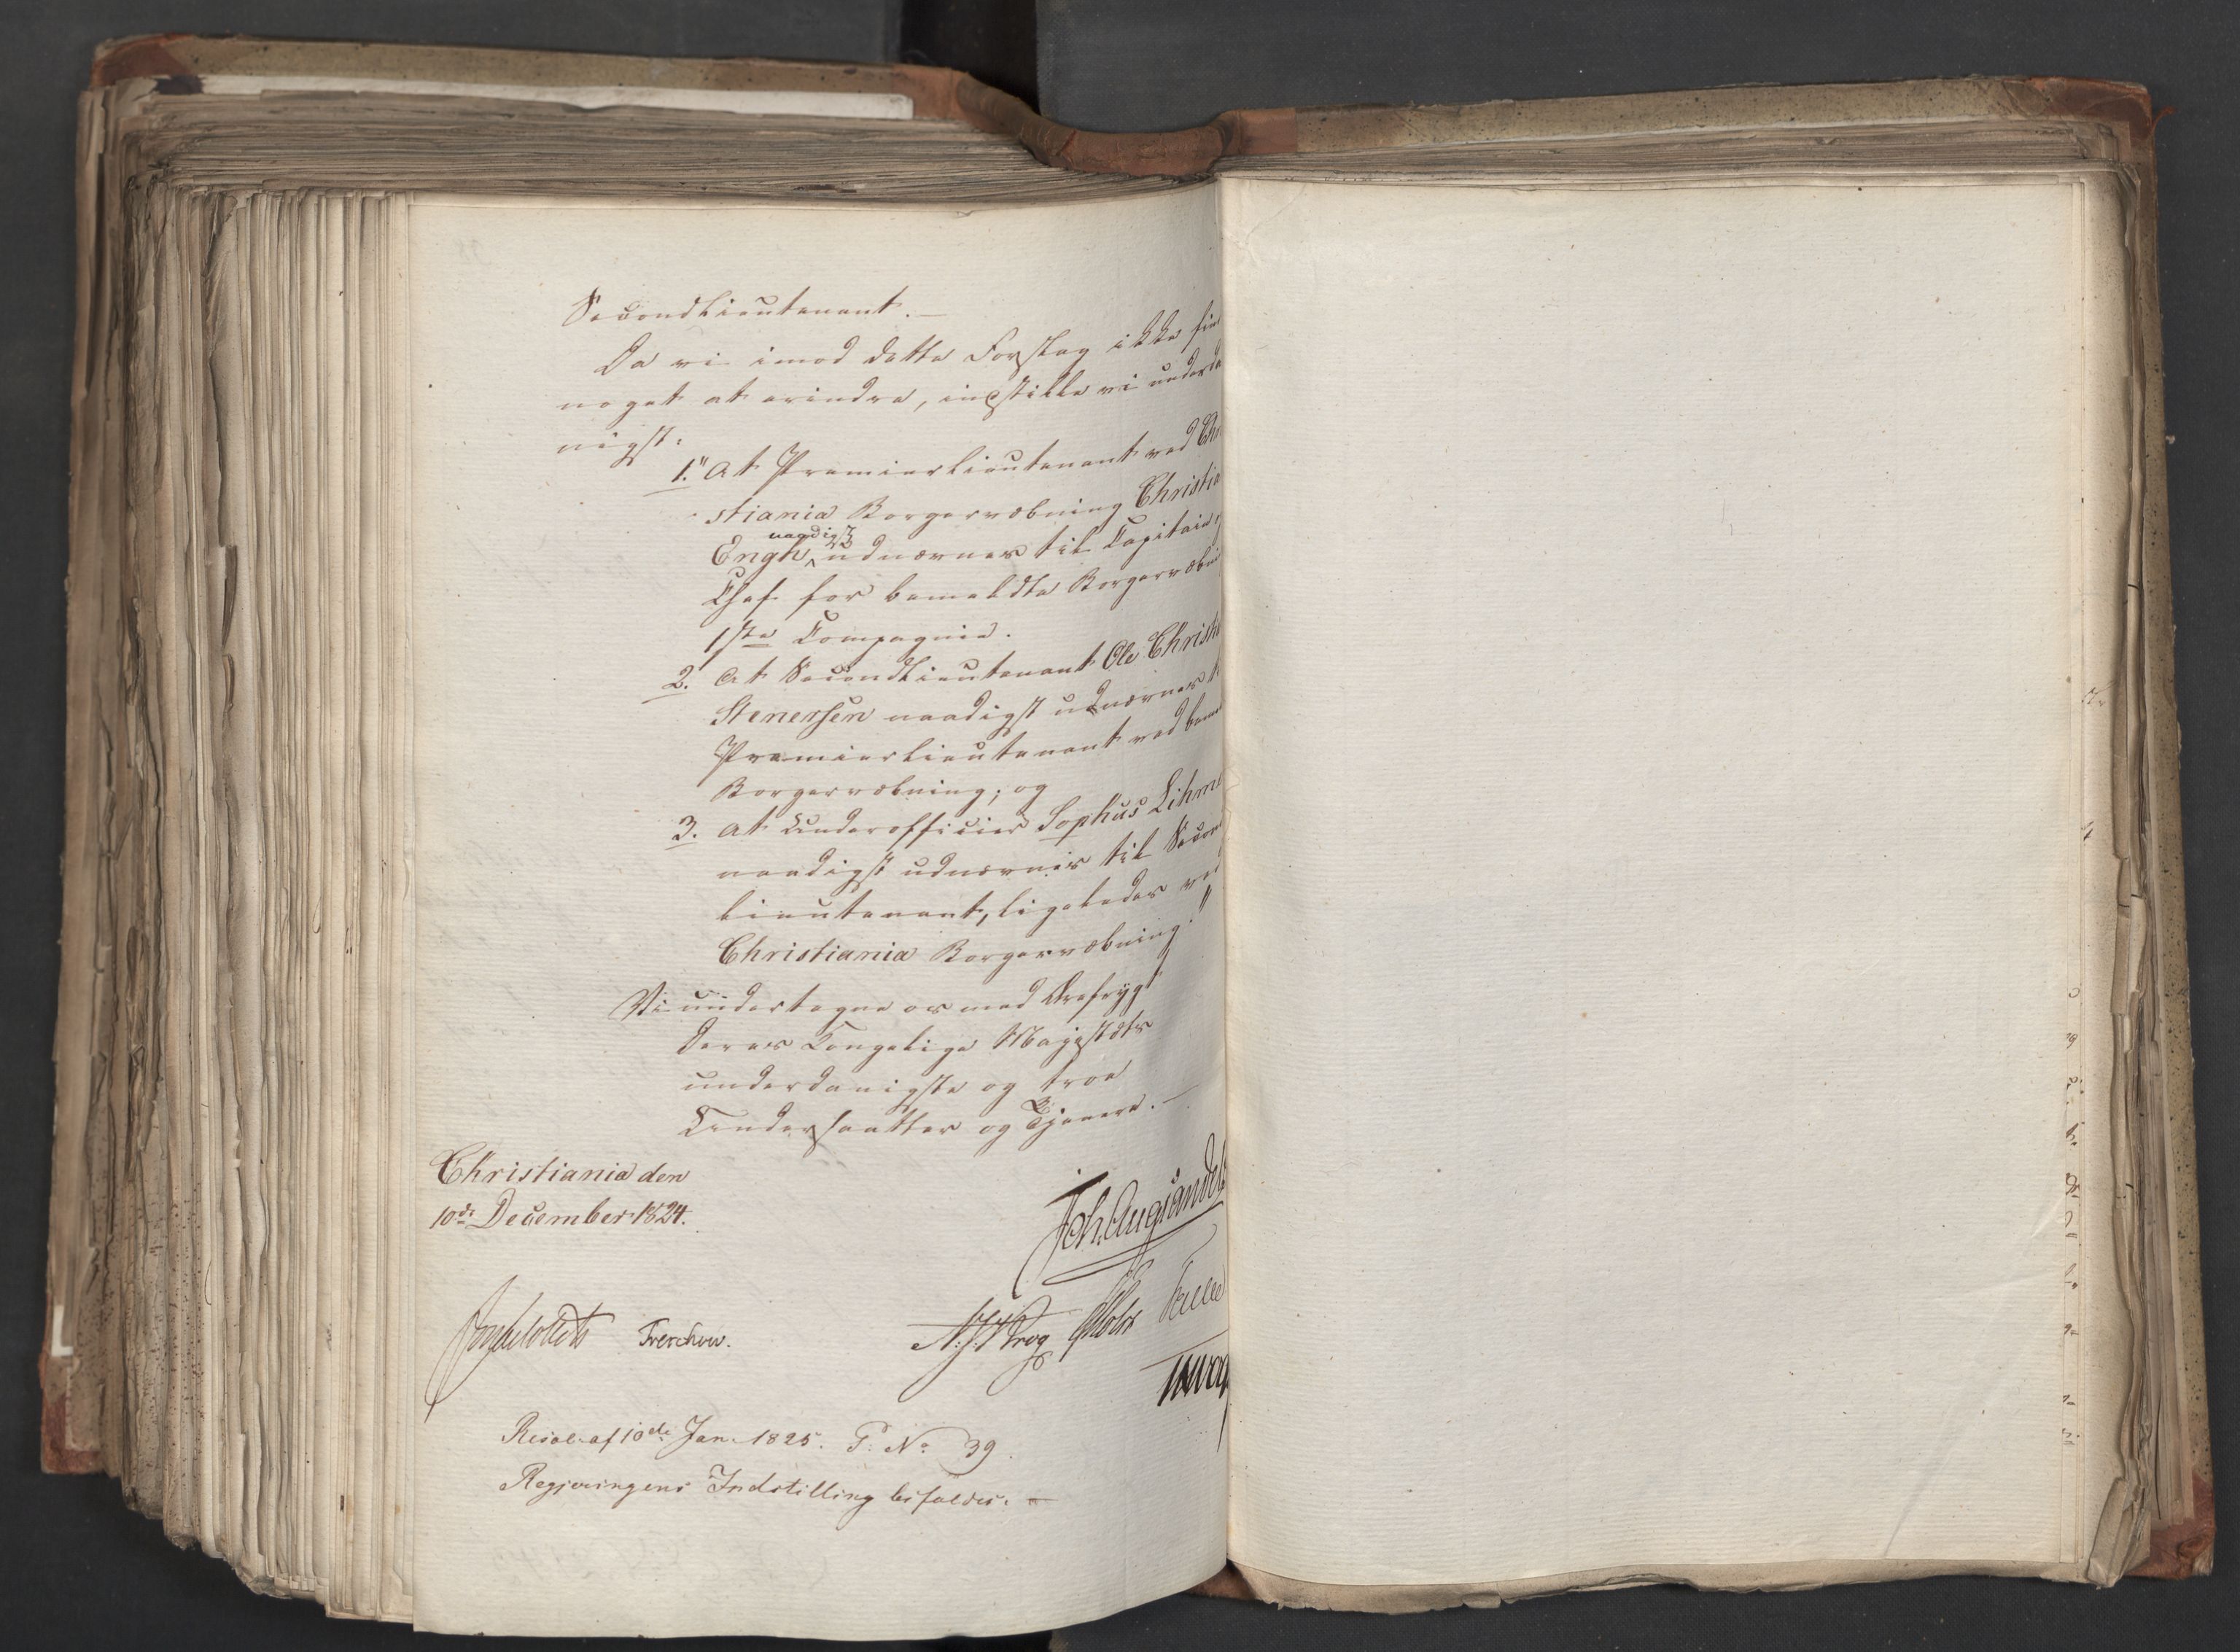 SecondLieutenant. —
Da vi imod dette Forslag ikke fin
noget at erindre, indstille vi underda
nigst:
1." At Premierlieutenant ved Chri
stiania Borgervæbning Christia
naadigst
Engh udnævnes til Capitain
Chef for bemeldte Borgervæbni
1ste Compagnie.
2. At SecondLieutenant Ole Christi
Stenersen naadigst udnævnes t
Premierlieutenant ved beme
Borgervæbning; og
3. At Underofficier Sophus Lihme
naadigst udnævnes til Secon
lieutenant, ligeledes ved
Christiania Borgervæbning."
Vi undertegne os med Ærefrygt
Deres Kongelige Majestæts
underdanigste og troe
Undersaatter og Tjenere. —
Christiania den
10de December 1824.
Joh. Aug Sandels
Treschow.
Resol. af 10de Jan. 1825. P: No 39.
Regjeringens Indstilling bifaldes. —